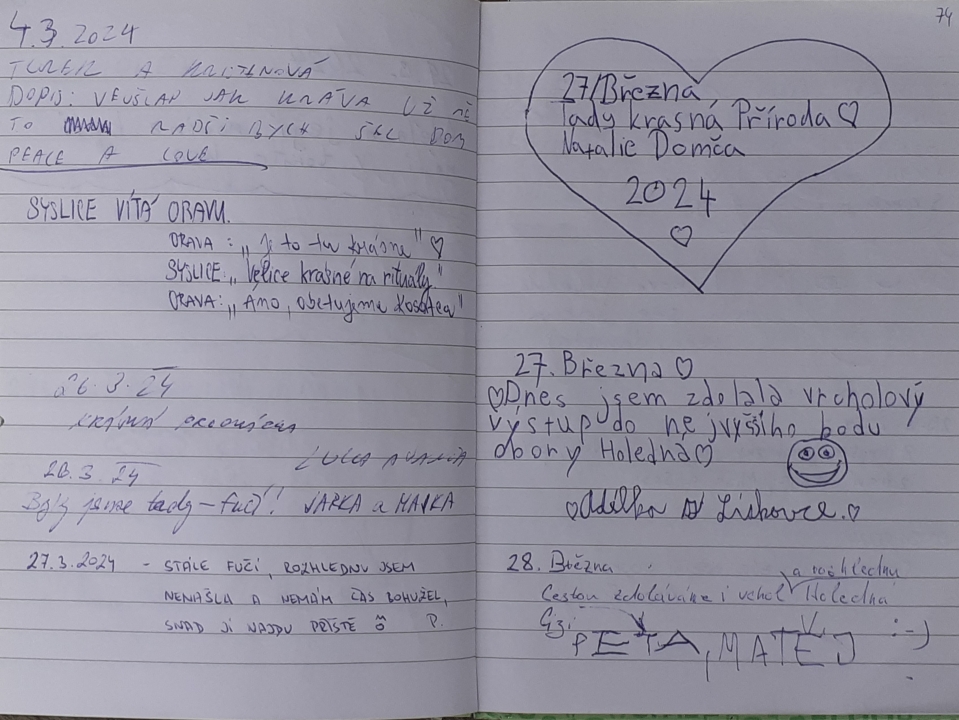 4.3.2024
TUREK A KRITINOVÁ
DOPIS: VEVŠLAP JAK KRÁVA UŽ NE
TO RADŠI BYCH ŠEL DOM
PEACE A LOVE
SYSLICE VÍTÁ ORAVU.
ORAVA: „Je to tu krásne" ♡
SYSLICE: „Velice krásné na rituály"
ORAVA: „Áno, obetujeme kosatca"
26.3.24
26.3.24
Byly jsme tady – fučí!! JARKA a HAJKA
27.3.2024 - STÁLE FUČÍ, ROZHLEDNU JSEM
NENAŠLA A NEMÁM ČAS BOHUŽEL,
SNAD JI NAJDU PŘÍŠTĚ P.
74
27/Března
Tady krasná Příroda ♡
Natalie Domča
2024
♡
27. Března ♡
♡Dnes jsem zdolala vrcholový
výstup do nejvyššího bodu
obory Holedná♡
♡Adélka Lískovce.♡
28. Března
a rozhlednu
Cestou zdoláváme i vrchol Holedná
PEŤA, MATĚJ :-)